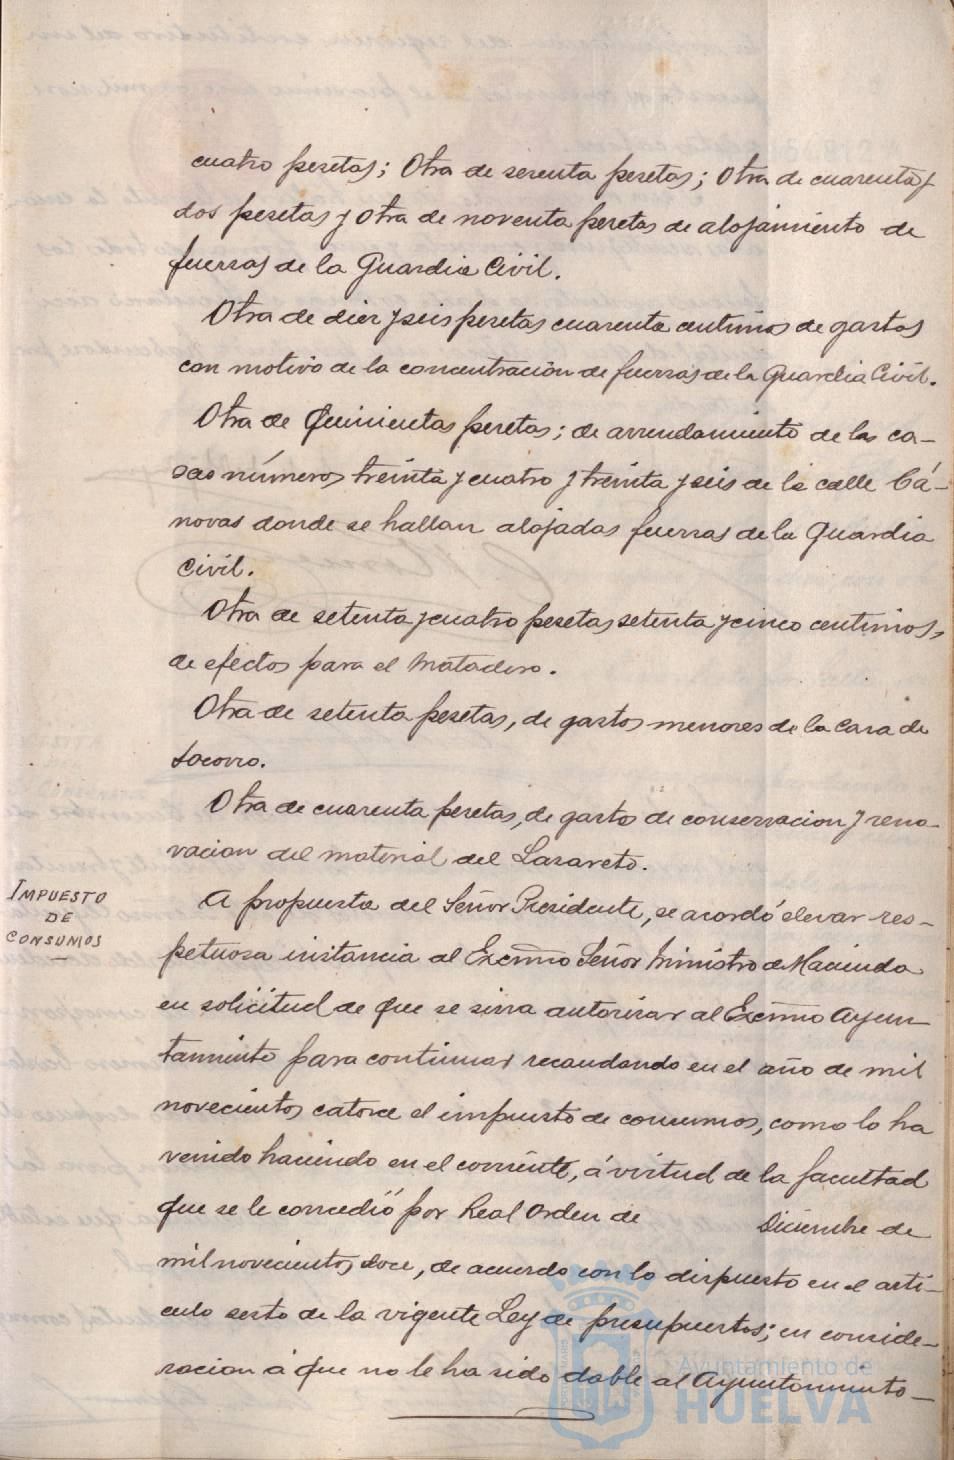 cuatro pesetas; Otra de sesenta pesetas; Otra de cuarenta y
dos pesetas y otra de noventa pesetas de alojamiento de
fuerzas de la Guardia Civil.
Otra de diez y seis pesetas cuarenta centimos de gastos
con motivo de la concentración de fuerzas de la Guardia Civil.
Otra de Quinientas pesetas; de arrendamiento de las ca-
sas números treinta y cuatro y treinta y seis de la calle Cá-
novas donde se hallan alojadas fuerzas de la Guardia
Civil.
Otra de setenta y cuatro pesetas setenta y cinco centimos,
de efectos para el Matadero.
Otra de setenta pesetas, de gastos menores de la Casa de
Socorro.
Otra de cuarenta pesetas, de gastos de conservacion y reno-
vacion del material del Lazareto.
IMPUESTO
DE
CONSUMOS
A propuesta del Señor Presidente, se acordó elevar res-
petuosa instancia al Excmo Señor Ministro de Hacienda
en solicitud de que se sirva autorizar al Excmo Ayun-
tamiento para continuar recaudando en el año de mil
novecientos catorce el impuesto de consumos, como lo ha
venido haciendo en el corriente, á virtud de la facultad
que se le concedió por Real Orden de Diciembre de
mil novecientos doce, de acuerdo con lo dispuesto en el artí-
culo sesto de la vigente Ley de presupuestos; en conside-
racion á que no le ha sido dable al Ayuntamiento-
Ayuntamiento de
HUELVA